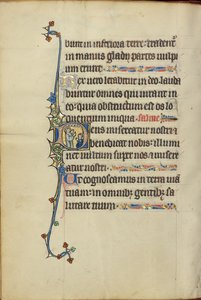 bunt in inferiora terre: tradent̃
in manus gladij partes vulpi
um erunt.
Rex vero letabitur in deo lauda
buntur omnes qui iurant in
eo: quia obstructum est os lo
quentium iniqua. psalmꝰ.
Deus misereatur nostri
benedicat nobis: illumi
net uultum suum sup nos misere
atur nostri.
Ut cognoscamus in terra uiā
tuam: in omnibꝫ gentibꝫ sa
lutare tuum.